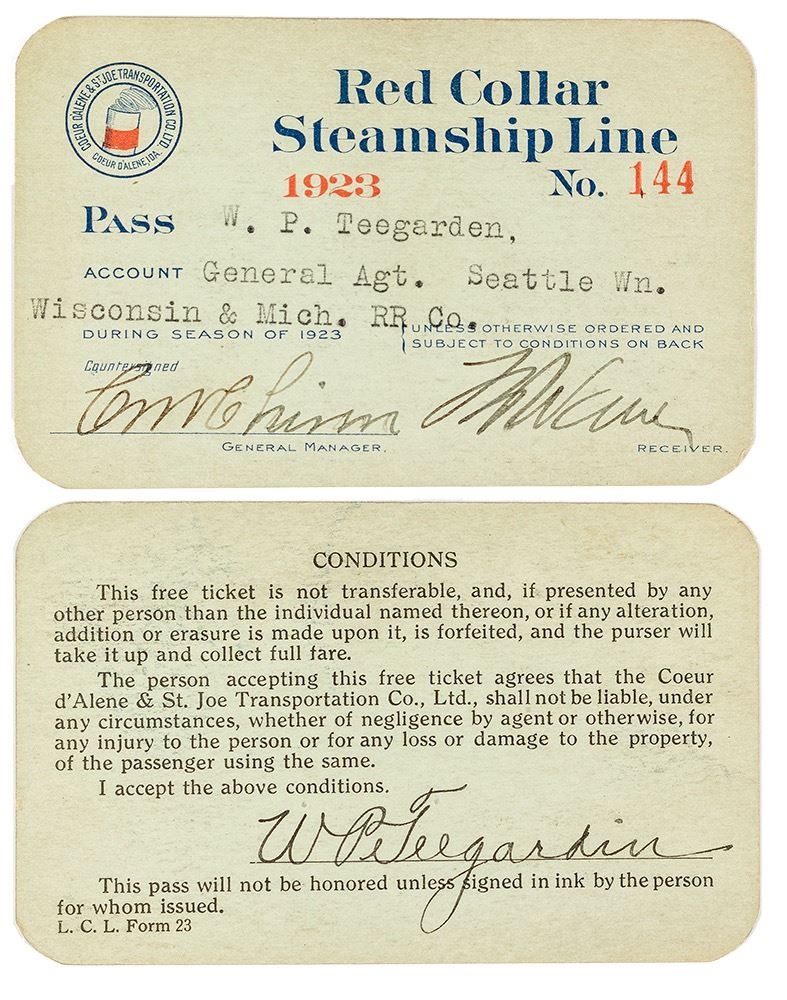 COEUR D'ALENE & ST JOE TRANSPORTATION CO. LTD.
COEUR D'ALENE, IDA.
Red Collar
Steamship Line
1923 No. 144
PASS W. P. Teegarden,
ACCOUNT General Agt. Seattle Wn.
Wisconsin & Mich. RR Co.
DURING SEASON OF 1923 { UNLESS OTHERWISE ORDERED AND
SUBJECT TO CONDITIONS ON BACK
Countersigned
GENERAL MANAGER. RECEIVER.
CONDITIONS
This free ticket is not transferable, and, if presented by any
other person than the individual named thereon, or if any alteration,
addition or erasure is made upon it, is forfeited, and the purser will
take it up and collect full fare.
The person accepting this free ticket agrees that the Coeur
d'Alene & St. Joe Transportation Co., Ltd., shall not be liable, under
any circumstances, whether of negligence by agent or otherwise, for
any injury to the person or for any loss or damage to the property,
of the passenger using the same.
I accept the above conditions.
W P Teegardin
This pass will not be honored unless signed in ink by the person
for whom issued.
L. C. L. Form 23